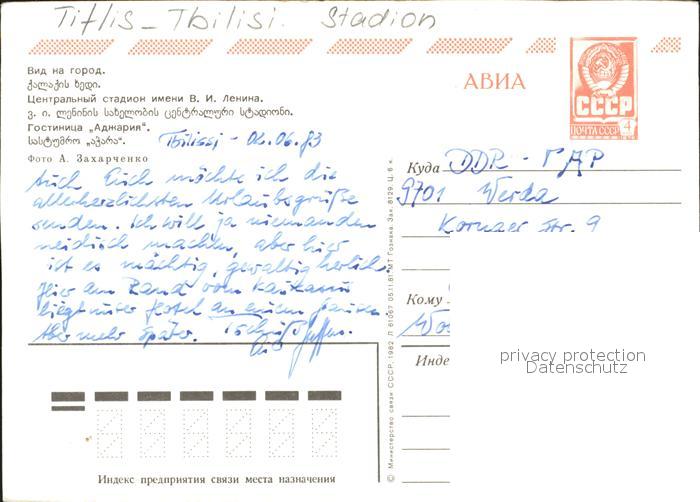 Tiflis - Tbilisi. Stadion
Вид на город.
ქალაქის ხედი.
Центральный стадион имени В. И. Ленина.
ვ. ი. ლენინის სახელობის ცენტრალური სტადიონი.
Гостиница „Аджария“.
სასტუმრო „აჭარა“.
Фото А. Захарченко
АВИА
СССР
ПОЧТА СССР 4
Tbilissi - 02.06.83
Auch Euch möchte ich die
allerherzlichsten Urlaubsgrüße
senden. Ich will ja niemanden
neidisch machen, aber hier
ist es mächtig, gewaltig herrlich.
Hier am Rand vom Kaukasus
liegt unser Hotel an einem
Aber mehr später. Tschüß
Куда DDR - ГДР
9701 Werda
Str. 9
Кому
Инде
© Министерство связи СССР, 1982
МТ Гознака. Зак. 8129. Ц. 6 к.
privacy protection
Datenschutz
Индекс предприятия связи места назначения